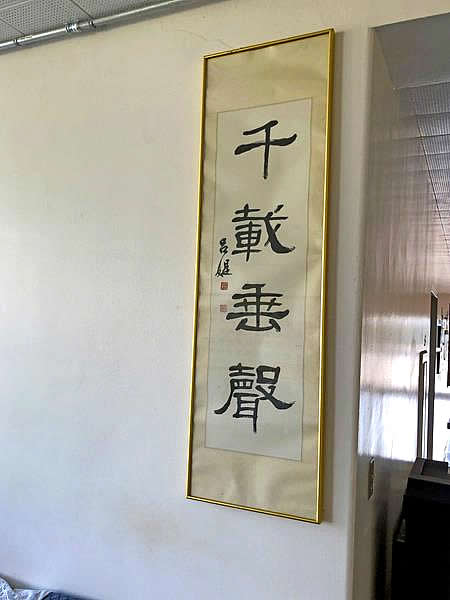 千載垂聲
呂媞